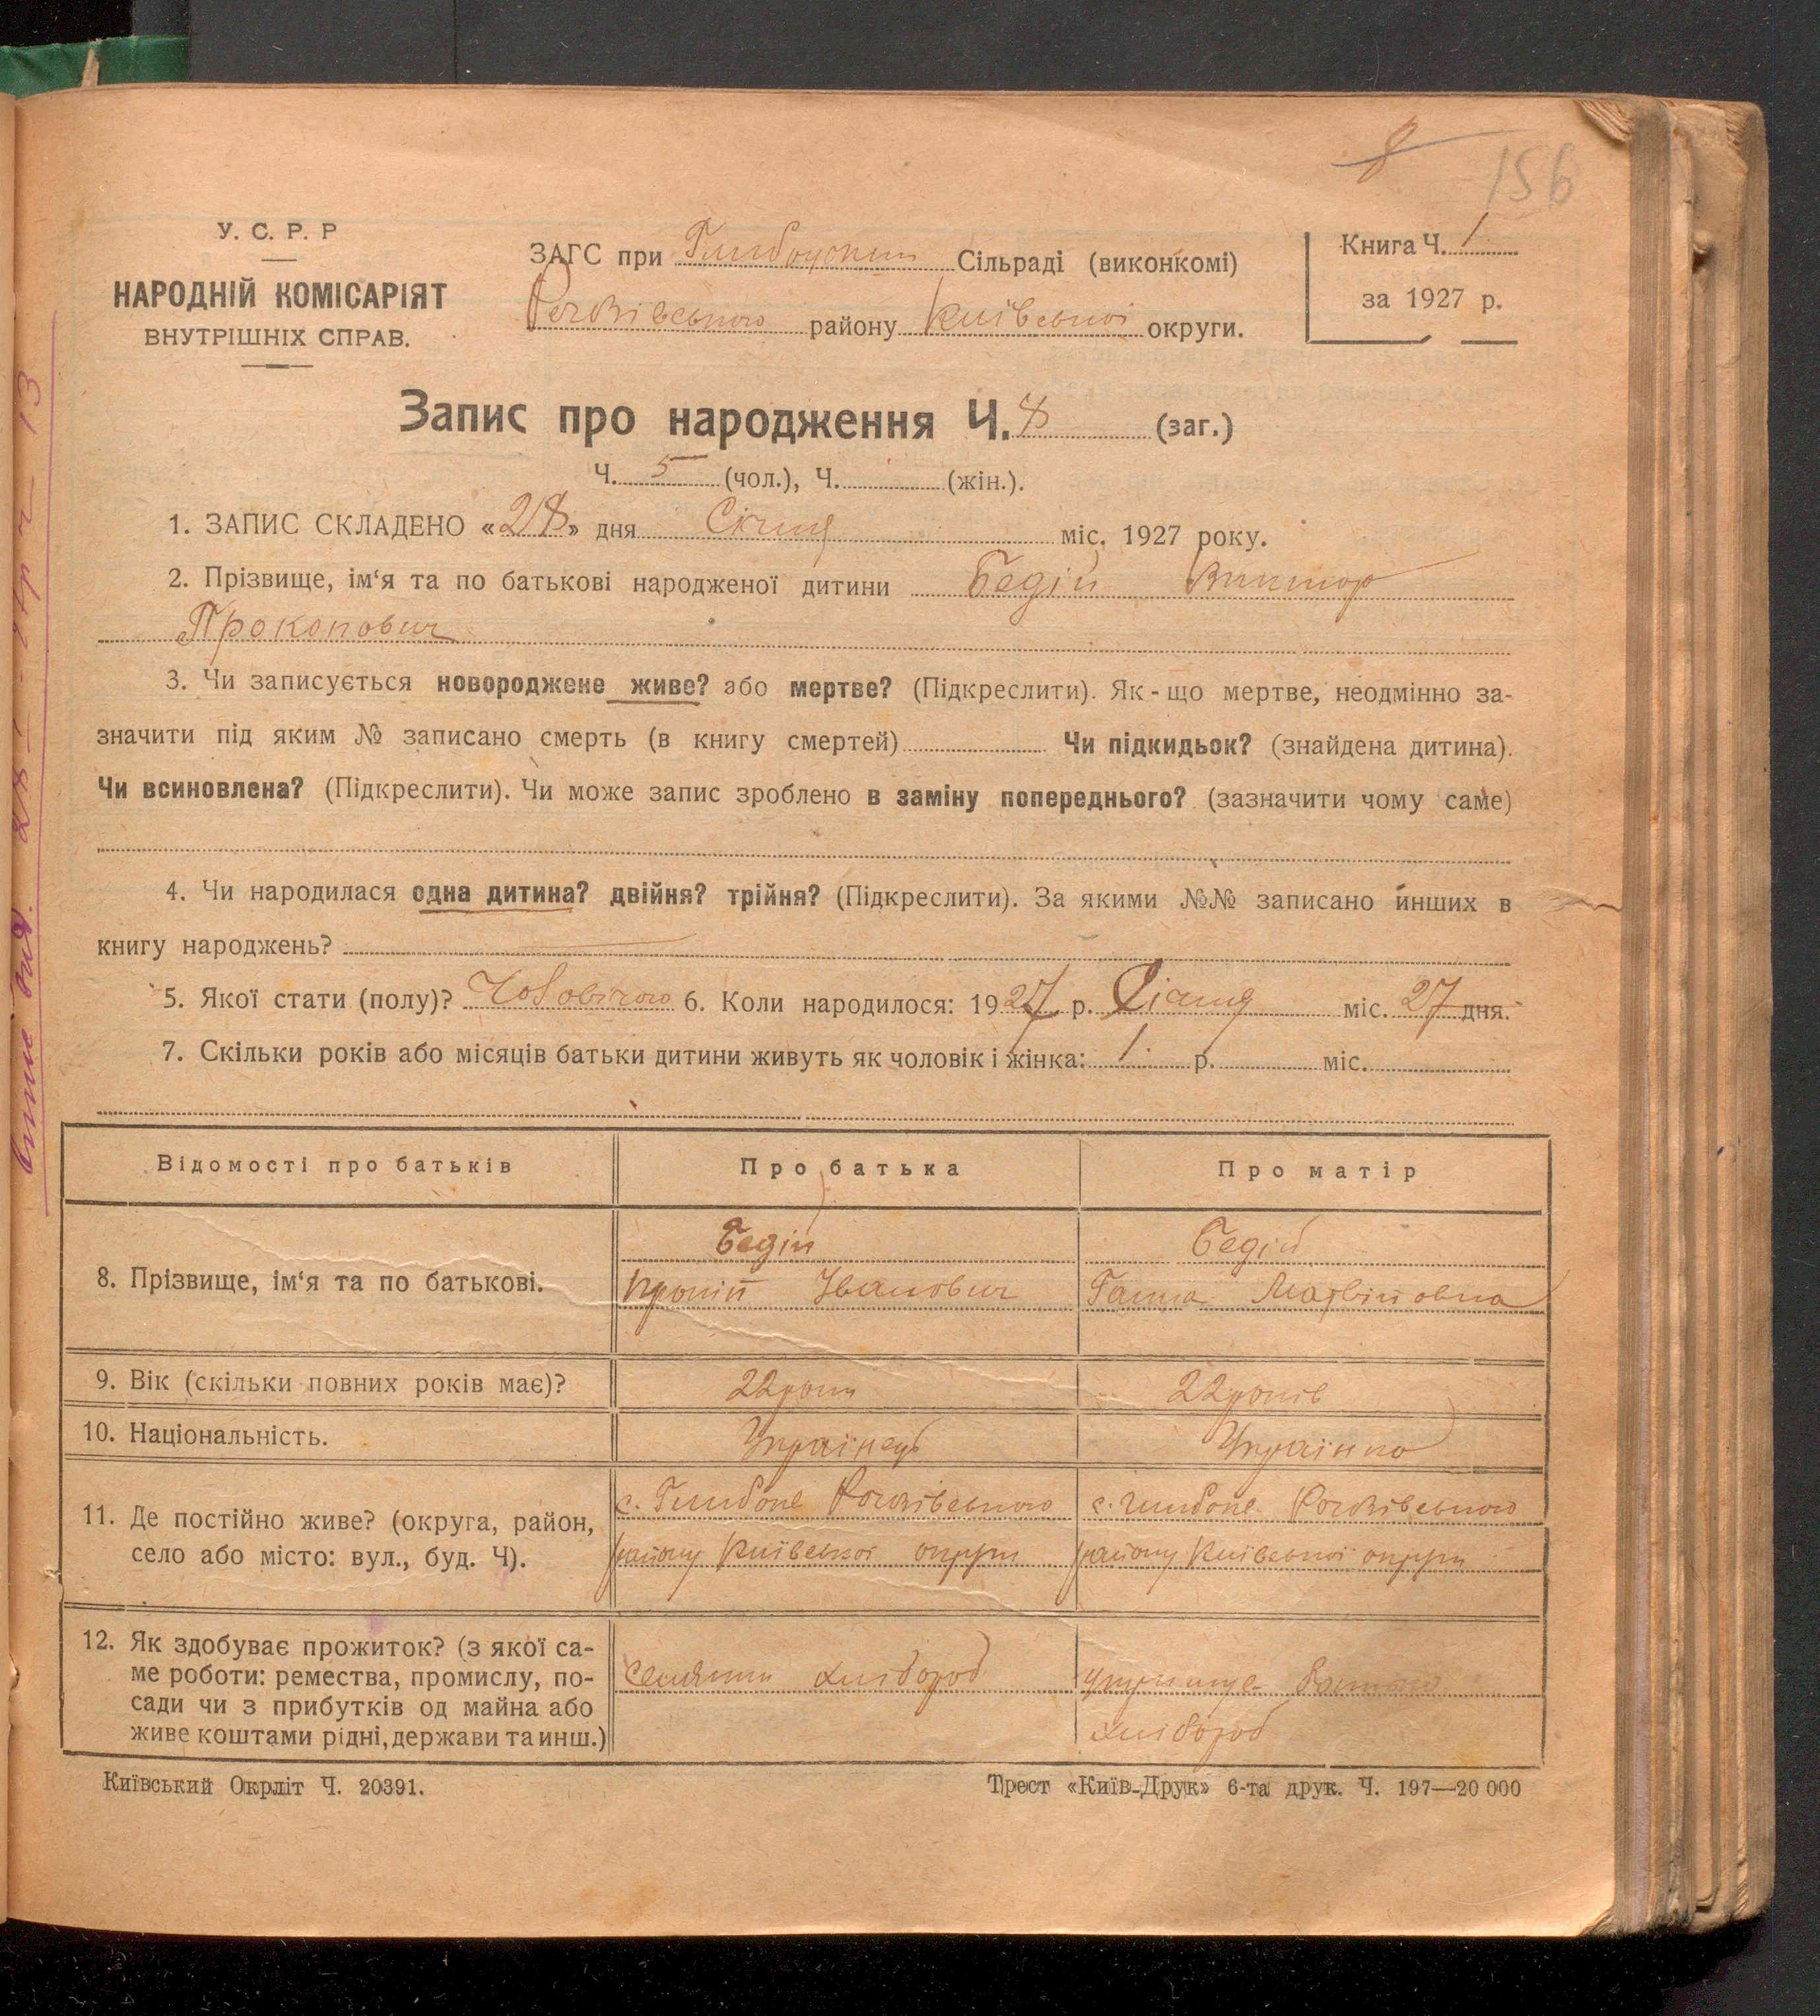 8
156
У. С. Р. Р
НАРОДНІЙ КОМІСАРІЯТ
ВНУТРІШНІХ СПРАВ.
ЗАГС при Глибоцькій Сільраді (виконкомі)
району Київської округи.
Книга Ч. 1
за 1927 р.
Запис про народження Ч. 8 (заг.)
Ч. 5 (чол.), Ч. (жін.).
1. ЗАПИС СКЛАДЕНО «28» дня Січня міс. 1927 року.
2. Прізвище, ім‘я та по батькові народженої дитини Бедій Виктор
Прокопович
3. Чи записується новороджене живе? або мертве? (Підкреслити). Як-що мертве, неодмінно за-
значити під яким № записано смерть (в книгу смертей) Чи підкидьок? (знайдена дитина).
Чи всиновлена? (Підкреслити). Чи може запис зроблено в заміну попереднього? (зазначити чому саме)
4. Чи народилася одна дитина? двійня? трійня? (Підкреслити). За якими №№ записано инших в
книгу народжень?
5. Якої стати (полу)? 6. Коли народилося: 1927 р. Січня міс. 27 дня.
7. Скільки років або місяців батьки дитини живуть як чоловік і жінка: 1 р. міс.
Відомості про батьків Про батька Про матір
8. Прізвище, ім‘я та по батькові. Бедій Бедій
Іванович Ганна Матвійовна
9. Вік (скільки повних років має)? 22 роки 22 років
10. Національність. Українець Українка
11. Де постійно живе? (округа, район,
село або місто: вул., буд. Ч).
с. Глибоке с. Глибоке
району Київської округи району Київської округи
12. Як здобуває прожиток? (з якої са-
ме роботи: ремества, промислу, по-
сади чи з прибутків од майна або
живе коштами рідні, держави та инш.)
селянин хлібороб
хлібороб
Київський Окрліт Ч. 20391.
Трест «Київ-Друк» 6-та друк. Ч. 197—20 000